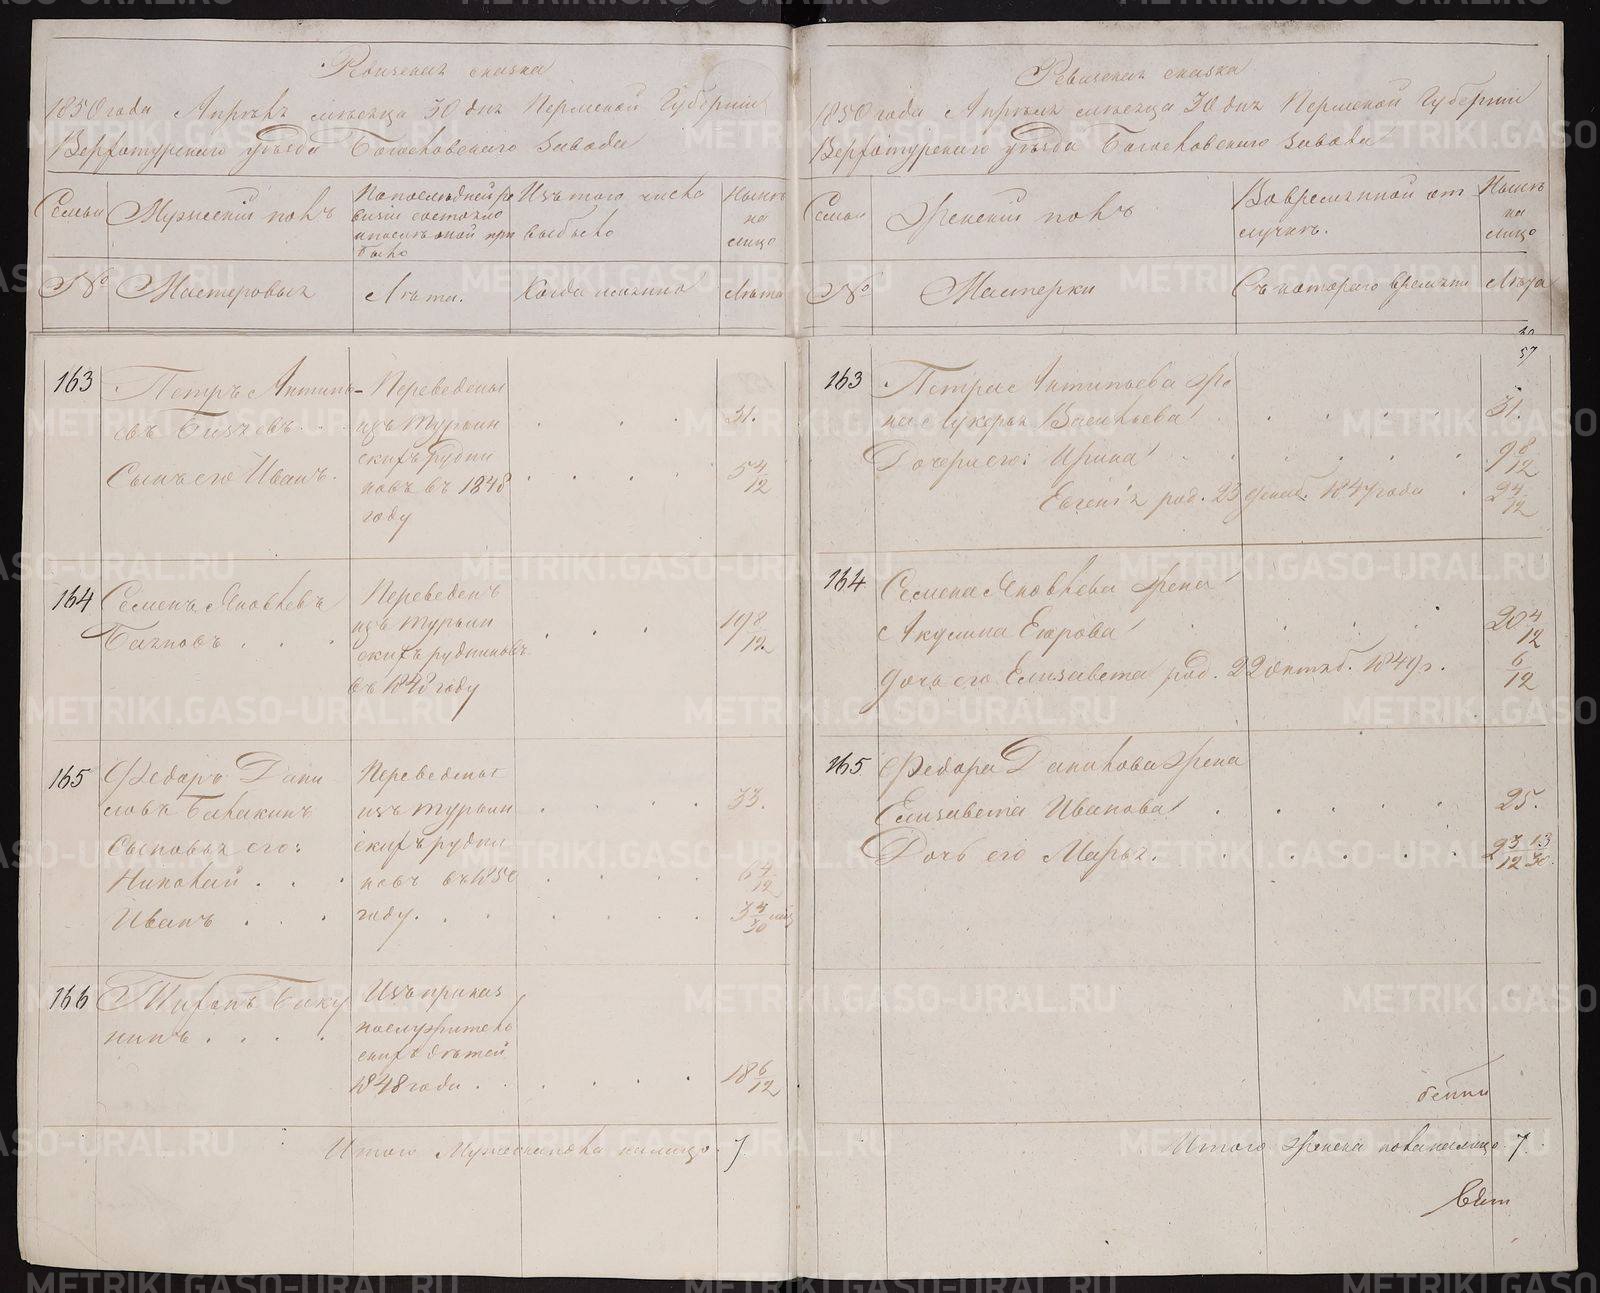 Ревизская сказка
1850 года Апрѣля мѣсяца 30 дня Пермской Губерніи
Верхотурскаго уѣзда Богословскаго завода
Семьи
Мужескій полъ
По последней ре
визіи состояло
и после оной при
было
Изъ того числа
выбыло
Нынѣ
на
лицо
№
Мастеровыя
Лѣта.
Когда именно
Лѣта
163
Петръ Антипь-
евъ
Сынъ его Иванъ.
Переведены
изъ Турьин
скихъ рудни
ковъ въ 1848
году
31.
5 4/12
164
Семенъ Яковлевъ
Переведенъ
изъ Турьин
скихъ рудниковъ
въ 1848 году
19 8/12
165
Федоръ Дани
ловъ Балакинъ
Сыновья его:
Николай
Иванъ
Переведены
изъ Турьин
скихъ рудни
ковъ въ 1850
году.
33.
6 4/12
166
нинъ
Изъ приказ
нослужитель
скихъ дѣтей
1848 года
18 6/12
Итого Мужеска пола на лицо 7
Ревизская сказка
1850 года Апрѣля мѣсяца 30 дня Пермской Губерніи
Верхотурскаго уѣзда Богословскаго завода
Семьи
Женскій полъ
Во временной от
лучкѣ.
Нынѣ
на
лицо
№
Мастерки
Съ котораго времени
Лѣта
57
163
Петра Антипьева же
на Лукерья Васильева
31.
Дочери его: Ирина
9 8/12
Евгенія род. 23 декаб. 1847 года
2 4/12
164
Семена Яковлева жена
Акулина Егорова
20 4/12
дочь его Елизавета род. 22 октяб. 1849 г.
6/12
165
Федора Данилова жена
Елизавета Иванова
25.
Дочь его Марья.
2 3/12 13/30
Итого женска пола на лицо 7.
METRIKI.GASO-URAL.RU